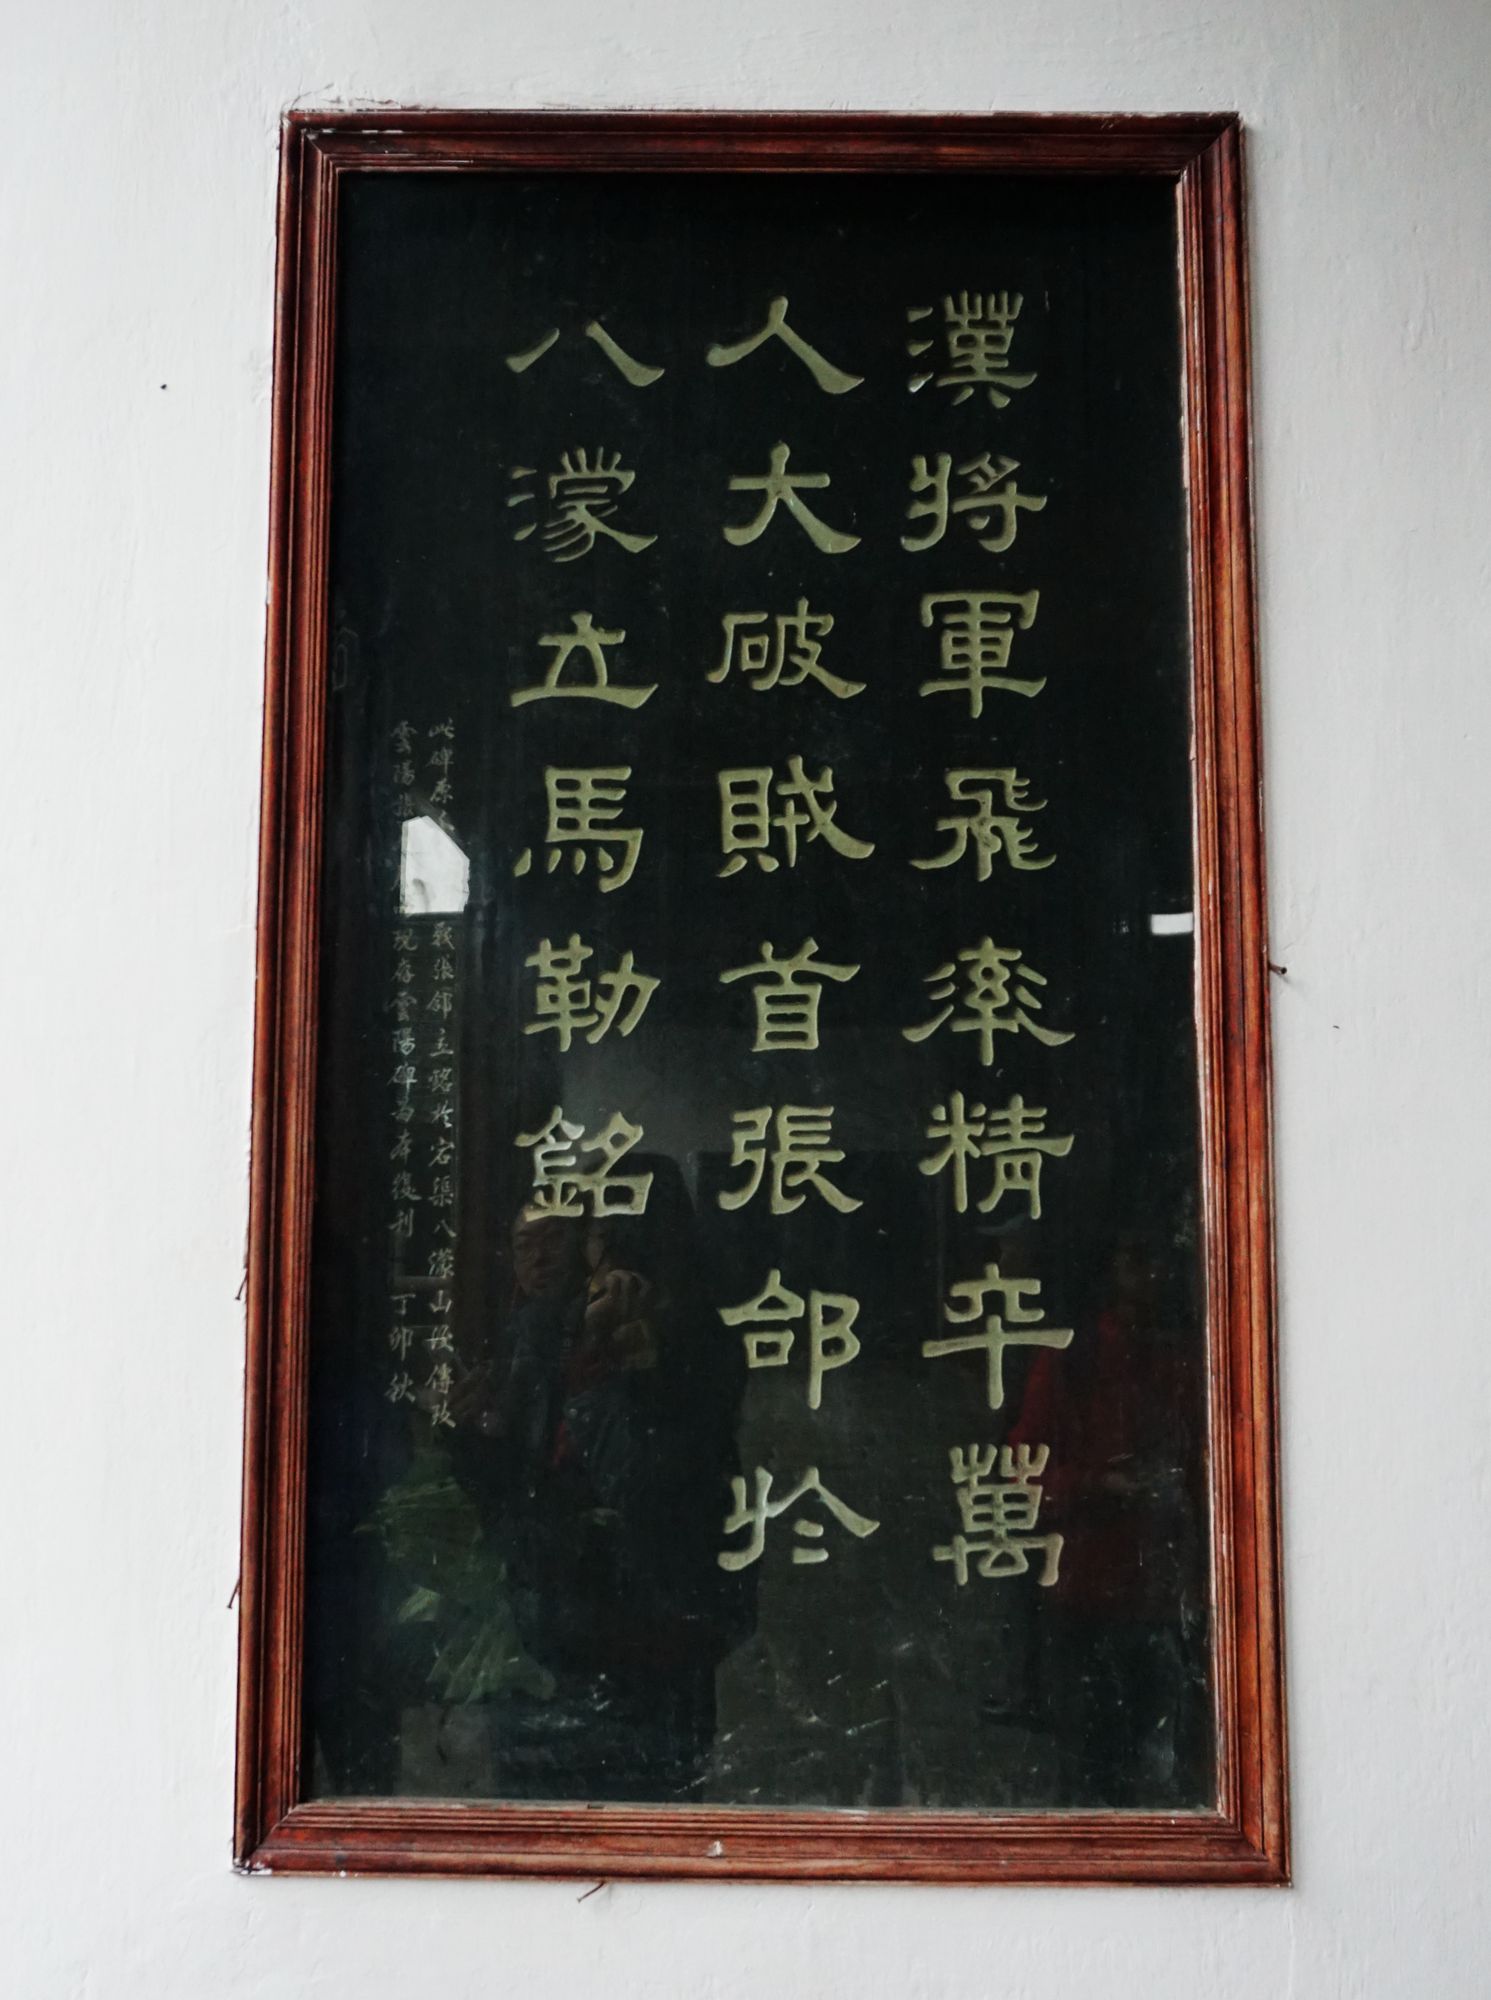 漢將軍飛率精卒萬
人大破賊首張郃於
八濛立馬勒銘
此碑原 戰張郃立銘於宕渠八濛山後傳改
雲陽張 現存雲陽碑為本復刊 丁卯秋